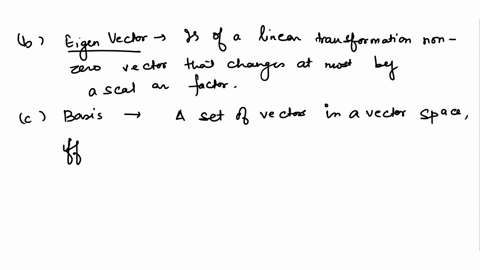 (b) Eigen Vector → Is of a linear transformation non-
zero vector that changes at most by
a scal an factor.
(c) Basis → A set of vectors in a vector space,
iff